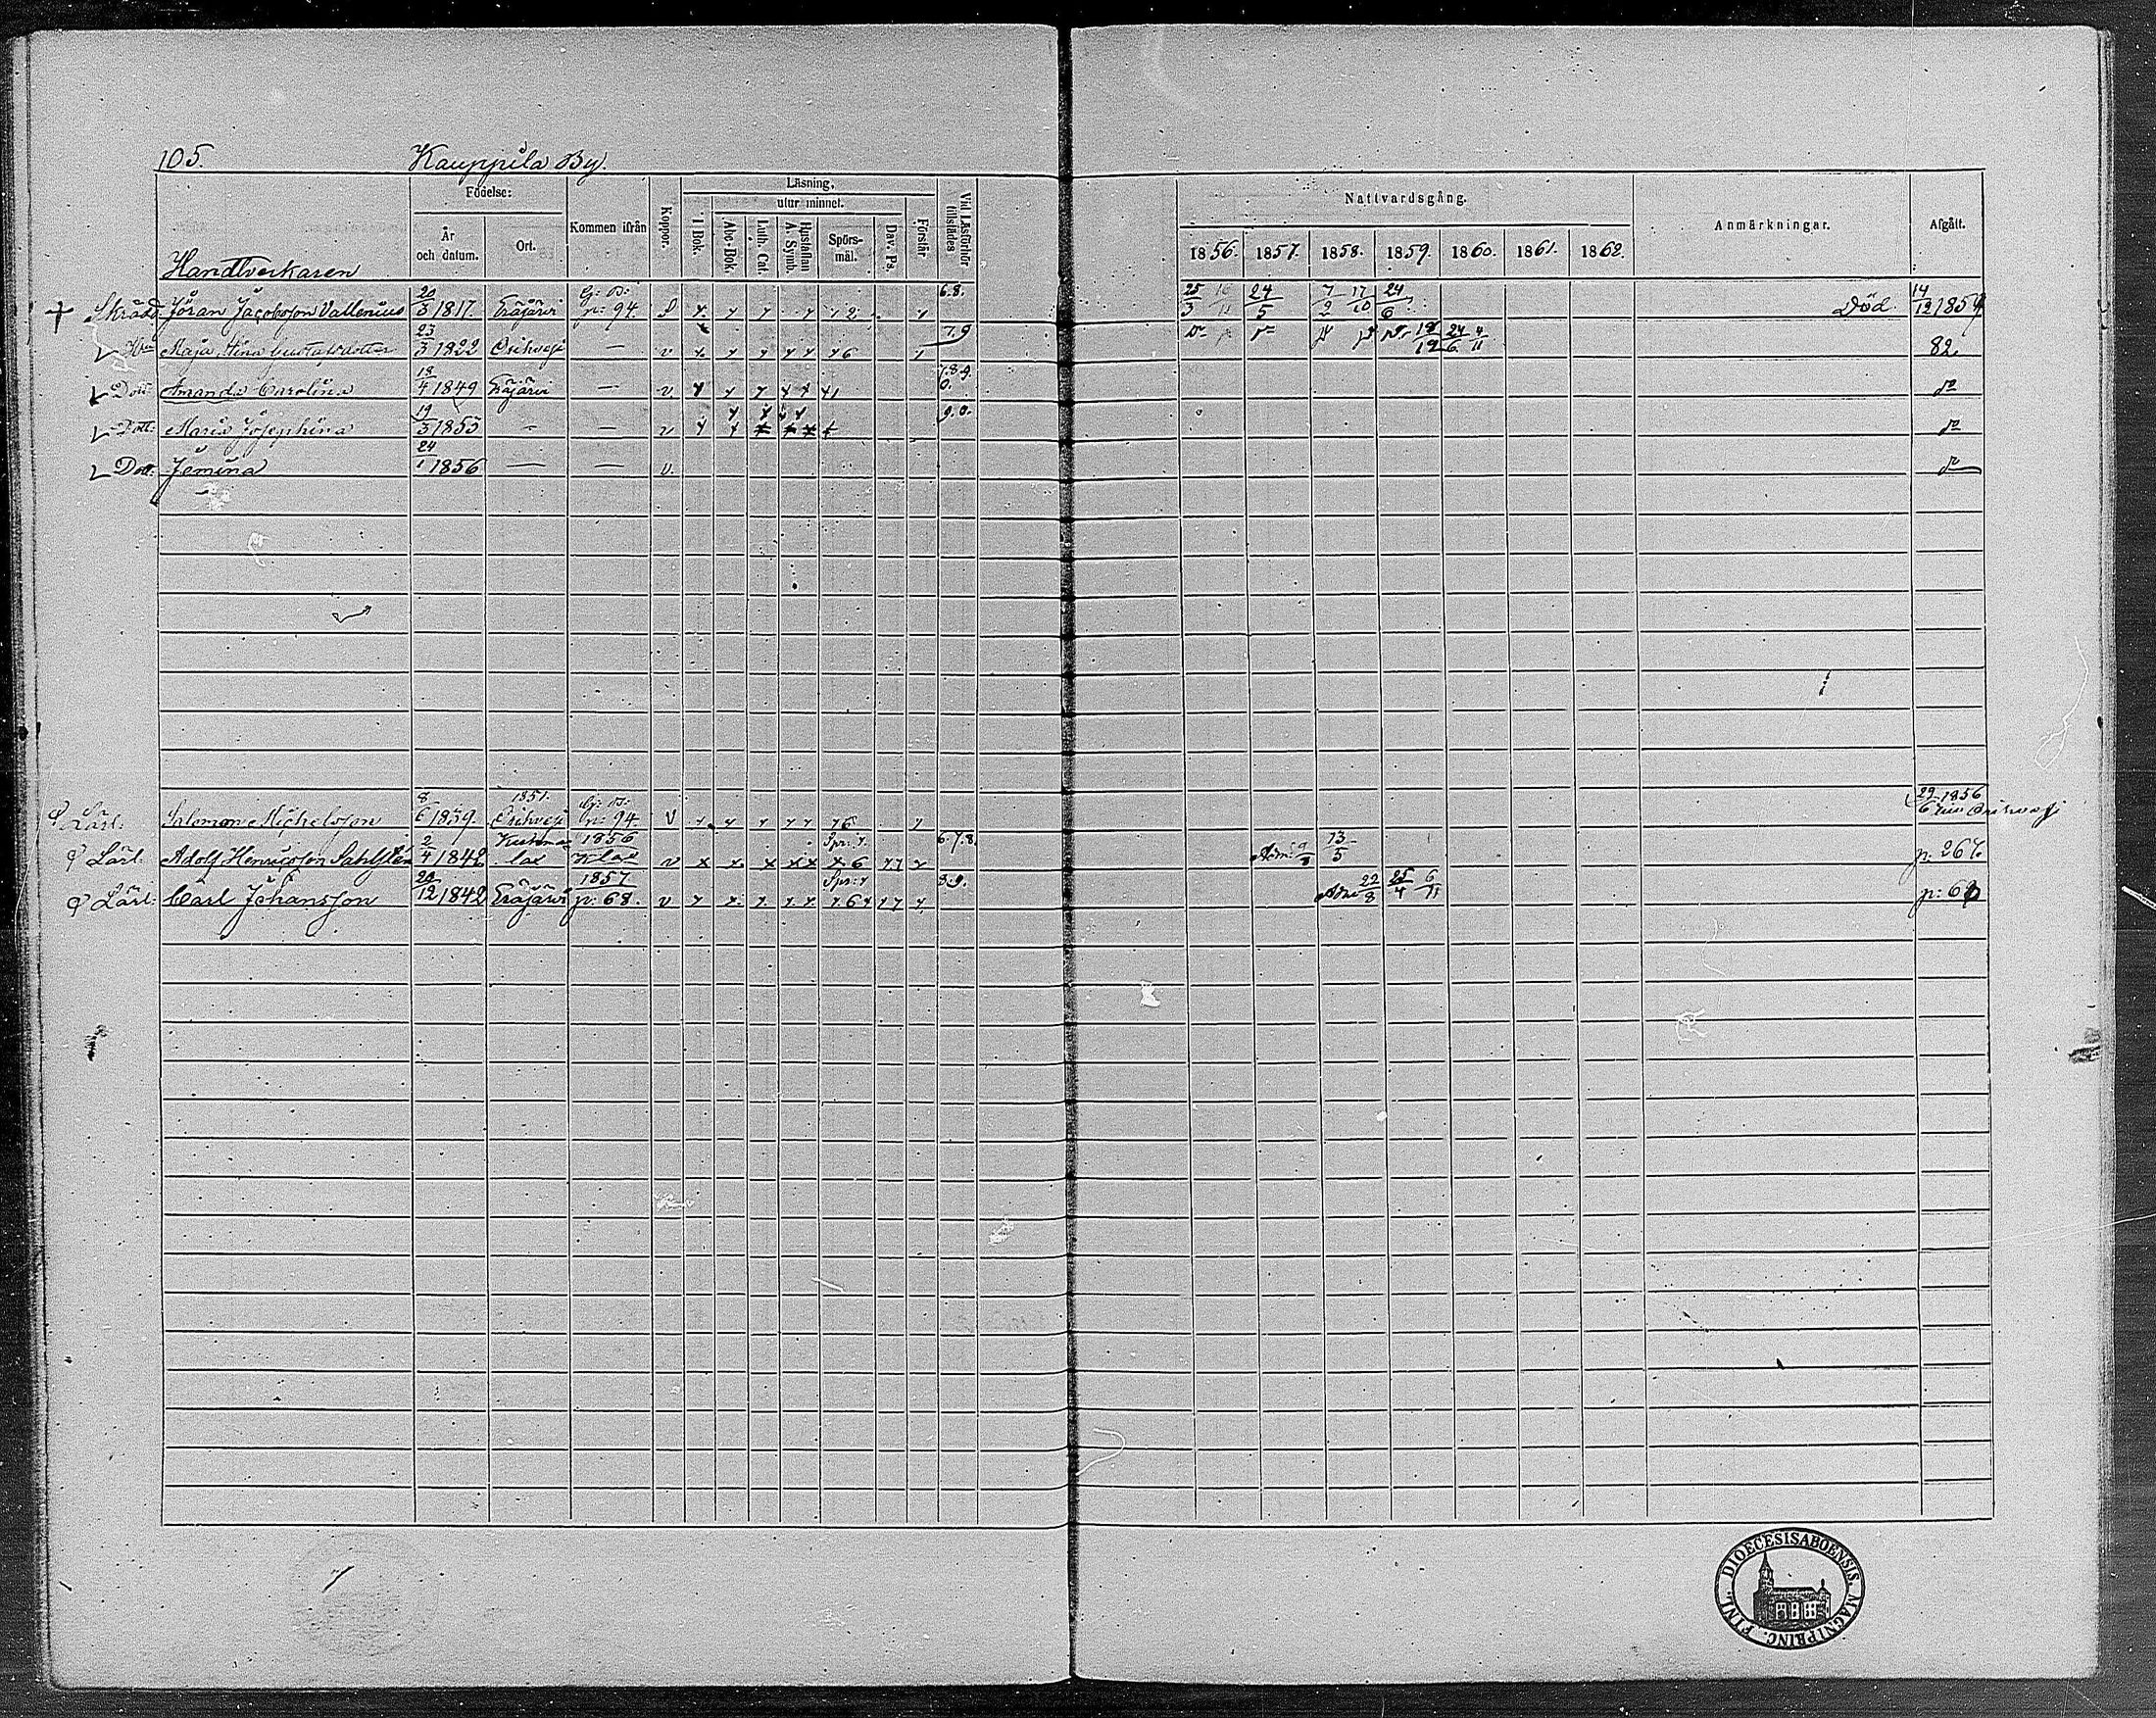 105. Kauppila By.
Födelse: Läsning, Nattvardsgång.
utur minnet.
År och datum. Ort. Kommen ifrån Koppor. I Bok. Abc-Bok. Luth. Cat. Hustaflan A. Symb. Spörs-mål. Dav. Ps. Förstår Vid Läsförhör tillstädes 1856. 1857. 1858. 1859. 1860. 1861. 1862. Anmärkningar. Afgått.
Handtverkaren
Skrädd. Jöran Jacobsson Vallenius 20/3 1817 Eräjärvi p: 94. 6.8. 25/3 24/5 7/2 17/10 24/6 Död. 14/12 1859
Maja Stina Gustafsdotter 23/3 1822 Orihvesi — v 7.9 24/6 4/11 82.
Dott. Amanda Carolina 18/4 1849 Eräjärvi — v 7.8.9. 0. do
Dott. Maria Josephina 19/3 1853 — — v 9.0. do
Dott. Jemina 24/1 1856 — — v. do
Lärl. Salomon Michelsson 8/6 1839 1851. Orihvesi p: 94. v 29/6 1856 till Orihvesi
Lärl. Adolf Henricsson Sahlstén 2/4 1842 Kuhmalax 1856 Klax v Spr: 6.7.8. Adm: 9/8 13/5 p: 267.
Lärl. Carl Johansson 20/12 1842 Eräjärvi 1857 p: 68. v Spr: 8.9. Adm 22/8 25/4 6/11 p: 60
DIOECESIS ABOENSIS. MAGNI PRINC. FINL.